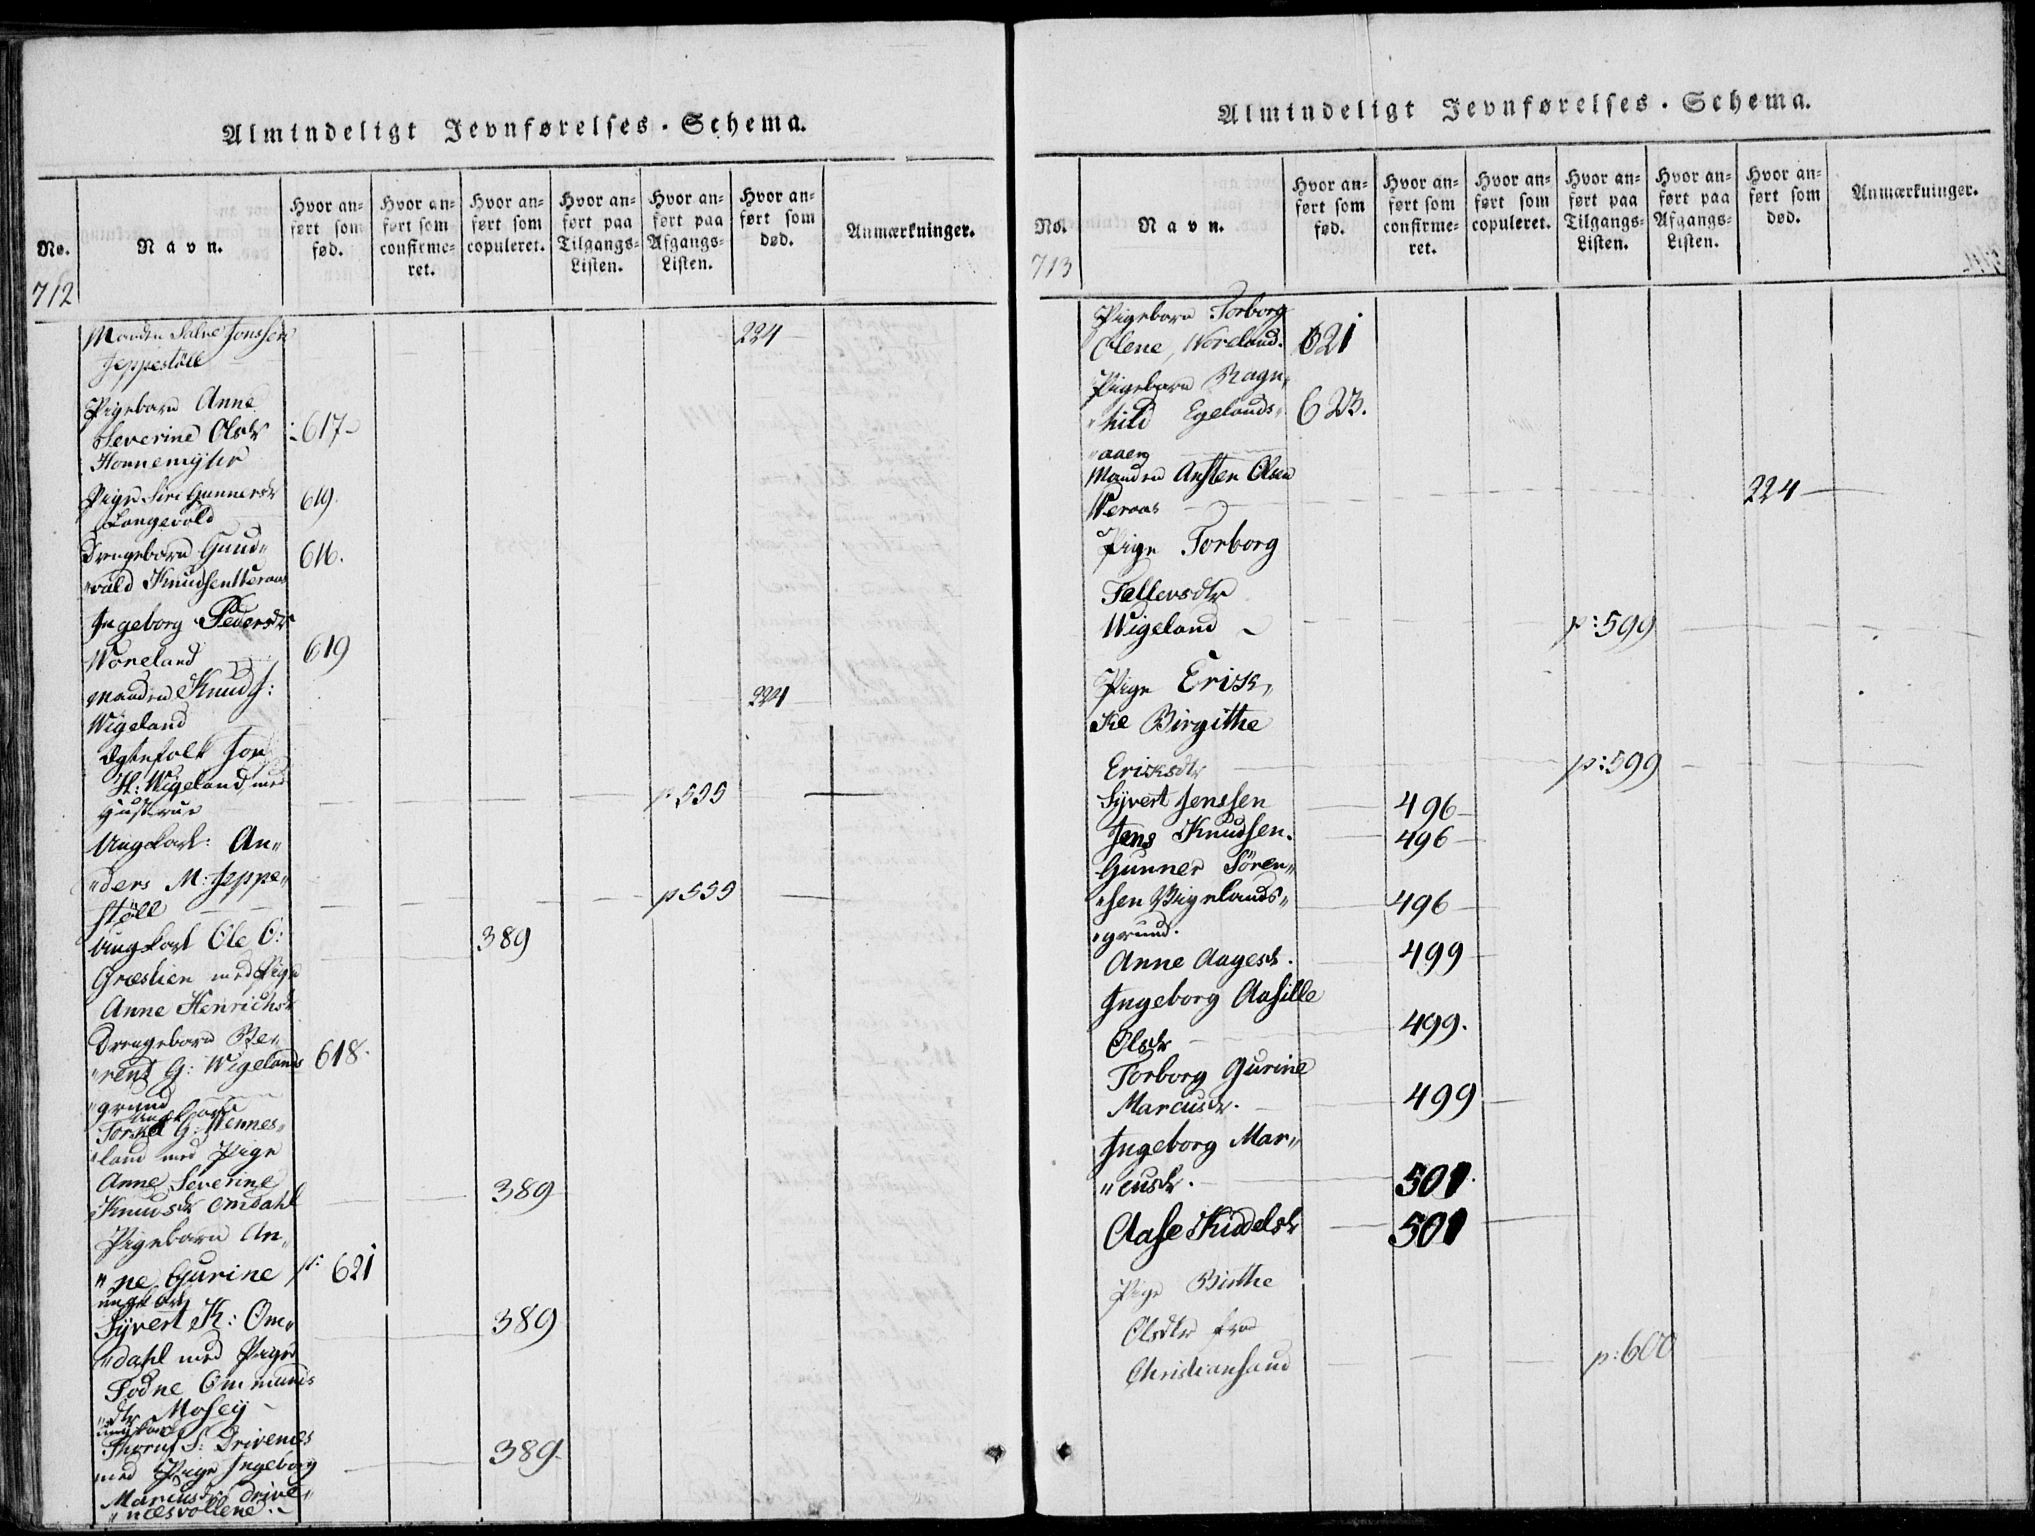 Almindeligt Jevnførelses-Schema.
No.
Navn.
Hvor an-
ført som
fød.
Hvor an-
ført som
confirme-
ret.
Hvor an-
ført som
copuleret.
Hvor an-
ført paa
Tilgangs-
Listen.
Hvor an-
ført paa
Afgangs-
Listen.
Hvor an-
ført som
død.
Anmærkninger.
712
Manden Salve Jonssen 224
Jeppestöll
Pigebarn Anne
Severine Olsdr 617
Honnemyhr
Pige Siri Gunnersdr 619.
Langevold
Drengebarn Gund„ 616.
„vald Knudsen
Ingeborg Pedersdr
Woreland 619
Manden Knud J: 224
Wigeland
Ægtefolk Jon
H: Wigeland med p 599
Hustrue
Ungkarl: An„
„ders M: Jeppe„
stöll p 599
Ungkarl Ole O: 389
Græslien med Pige
Anne Henrichsdr
Drengebarn Be„
„rent G: Wigelands 618.
„grund
Ungkarl
Torkel G: Wennes„
„land med Pige
Anne Severine
Knudsdr Omdahl 389
Pigebarn An„
„ne Gurine p: 621
ungkarl
Syvert K: Om„ 389
„dahl med Pige
Todne Ommunds
„dtr Mosey
ungkarl
S: Drivenes
med Pige Ingeborg 389
Marcusdr Drive„
„nesvollene.
Almindeligt Jevnførelses-Schema.
No.
Navn.
Hvor an-
ført som
fød.
Hvor an-
ført som
confirme-
ret.
Hvor an-
ført som
copuleret.
Hvor an-
ført paa
Tilgangs-
Listen.
Hvor an-
ført paa
Afgangs-
Listen.
Hvor an-
ført som
død.
Anmærkninger.
713
Pigebarn Torborg
Olene, Woreland. 621
Pigebarn Ragn„
„hild Egelands„ 623.
„aaen
Manden Ansten Olsen 224
Weraas
Pige Torborg
Tallevsdtr
Wigeland p: 599
Pige Erik„
ke Birgithe
Eriksdtr p: 599
Syvert Jenssen 496
Jens Knudsen. 496
Gunner Sören„
„sen Vigelands„ 496
„grund.
Anne Aagesdr. 499
Ingeborg Aasille
Olsdr 499.
Torborg Gurine
Marcusdr. 499
Ingeborg Mar„
„cusdr. 501.
Aase Kiddelsdr 501
Pige Birthe
Olsdtr fra
Christiansand p: 600